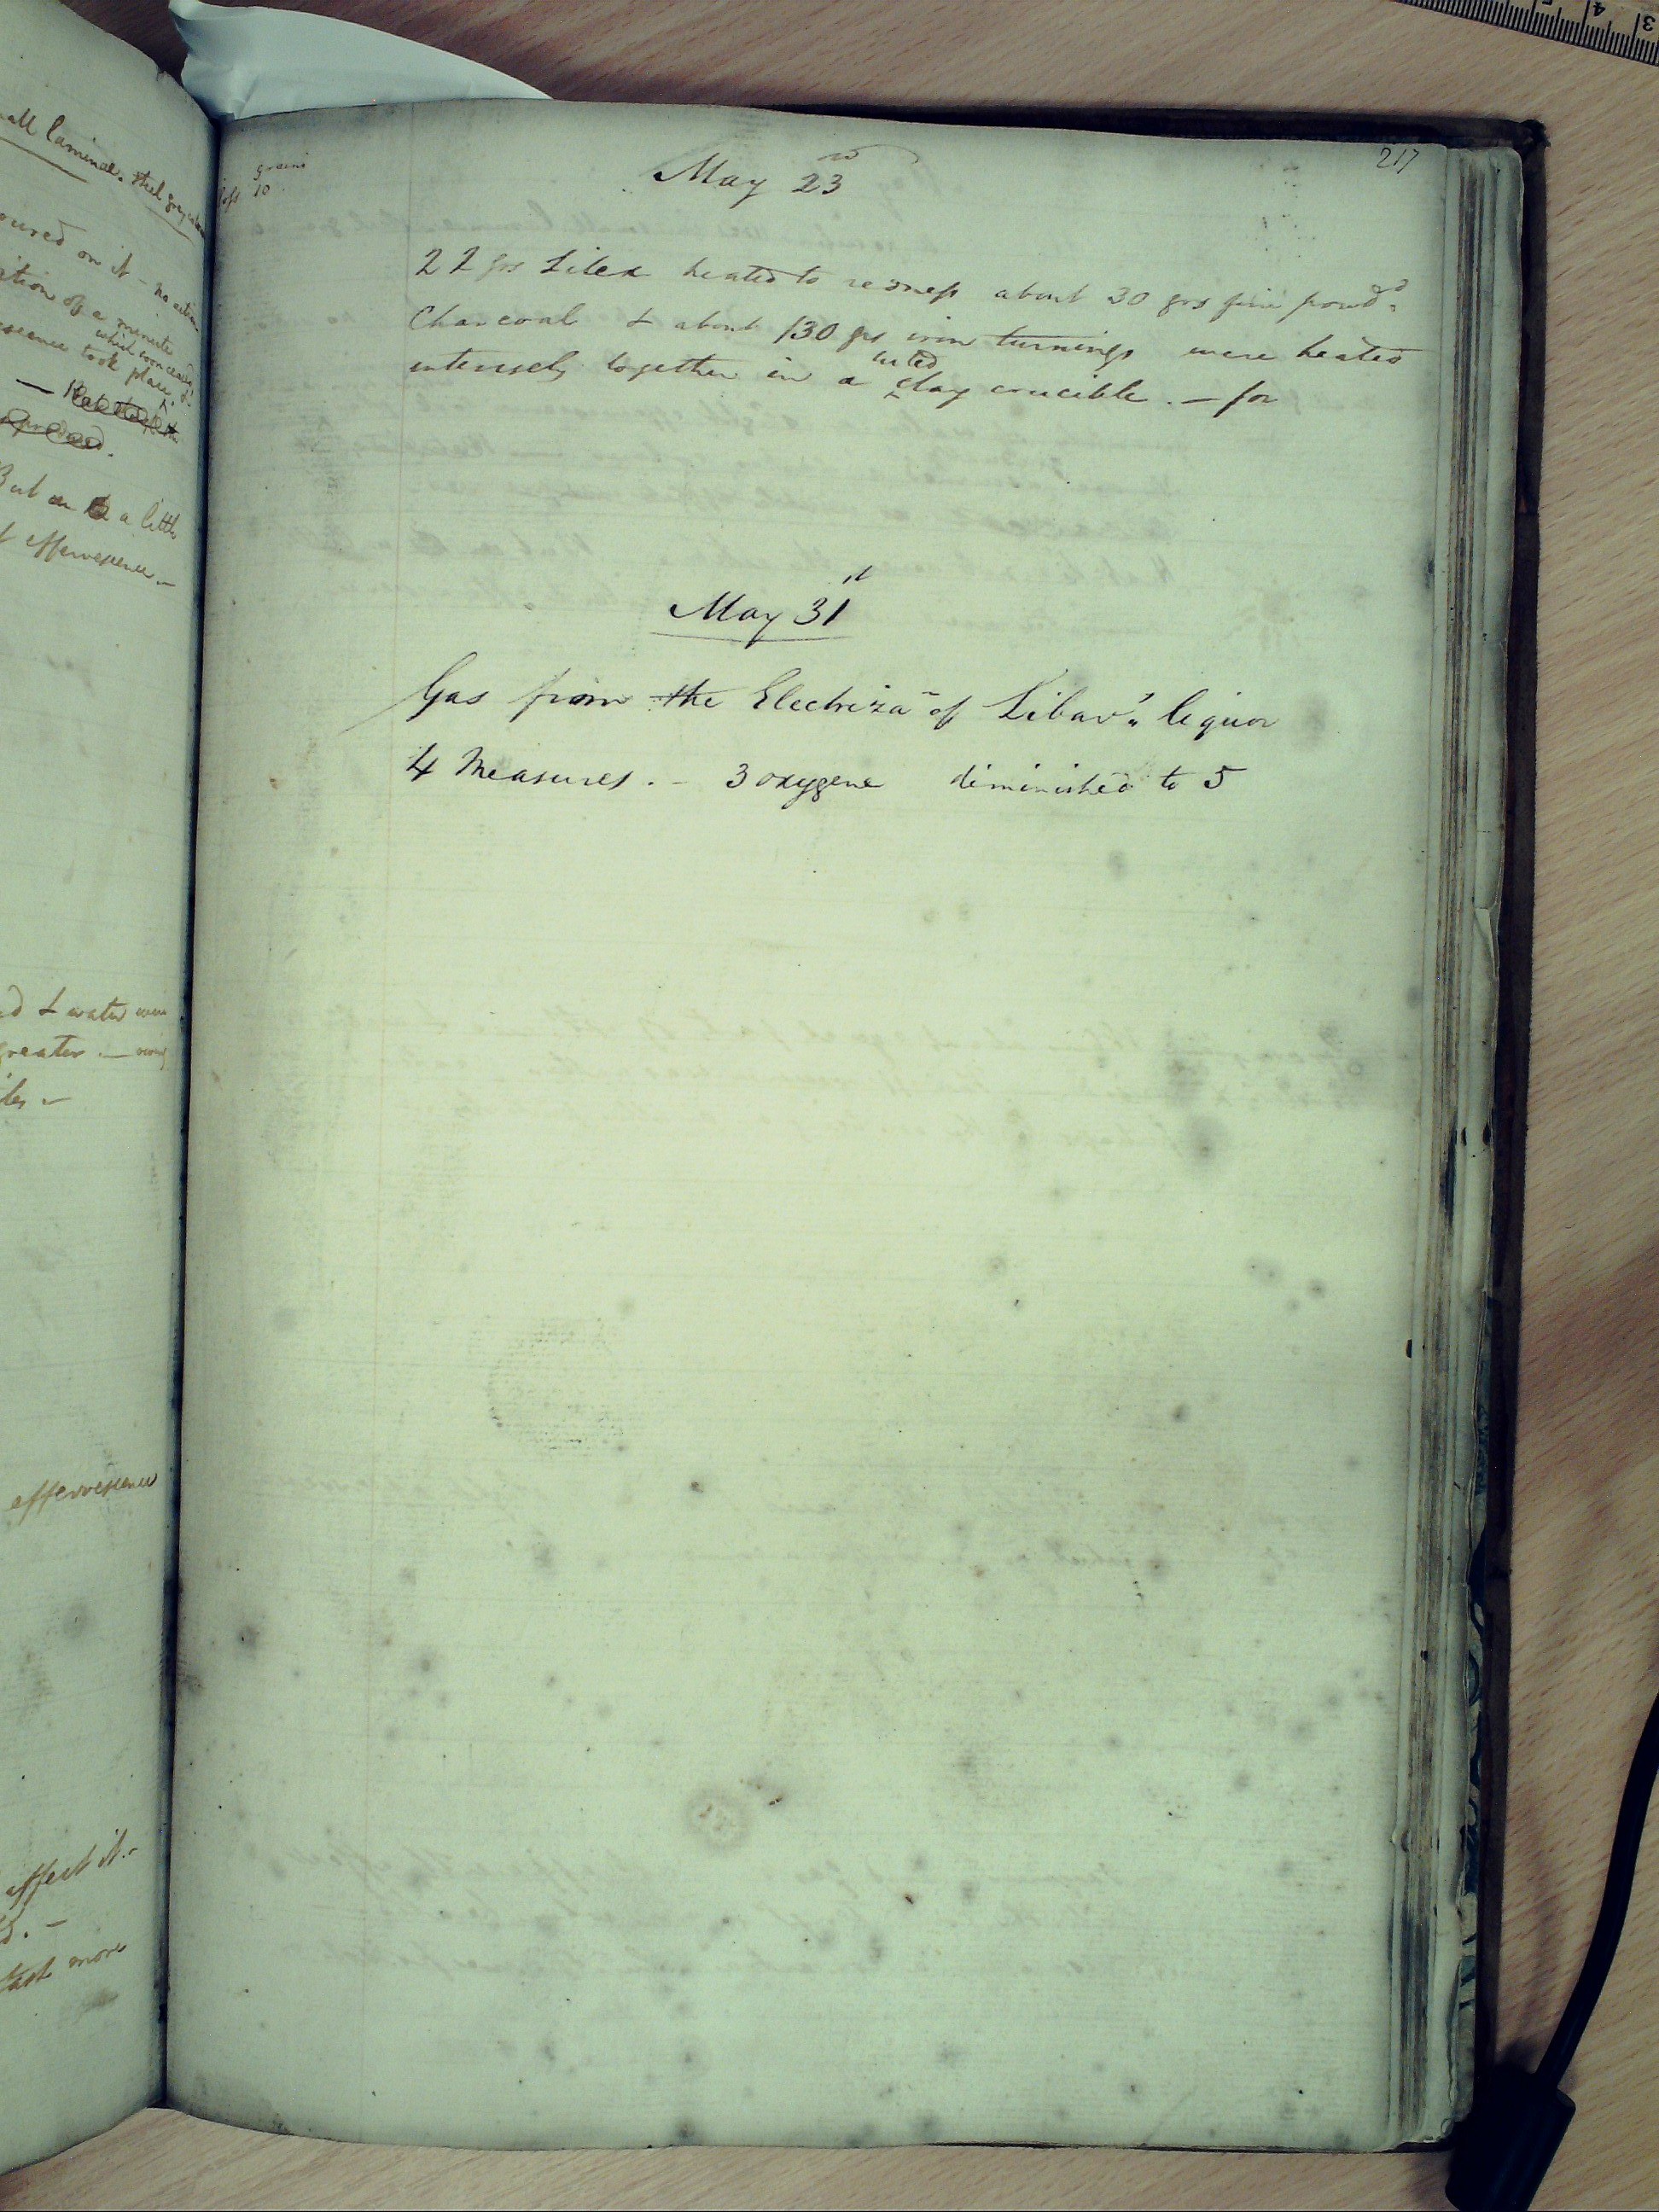 all laminae. steel grey
grains
loss 10
oured on it - no action
ition of a minute
which soon ceased
escence took place
produced.
But a little
f effervescence. -
d & water were
greater. -
les -
effervescence
affect it. -
d. -
taste more
217
May 23rd
22 grs Silex heated to redness about 30 grs fine powdd.
Charcoal & about 130 grs iron turnings were heated
luted
intensely together in a ^ clay crucible. - for
May 31st
Gas from the Electriza~ of Libav's liquor
4 Measures. - 3 oxygene diminished to 5
5 4 3